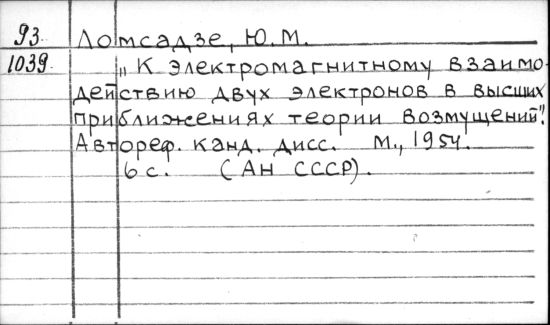 93 Ломсадзе, Ю.М.
1039 „К электромагнитному взаимо-
действию двух электронов в высших
приближениях теории возмущений".
Автореф. канд. дисс. М., 1954.
6 с. (АН СССР).